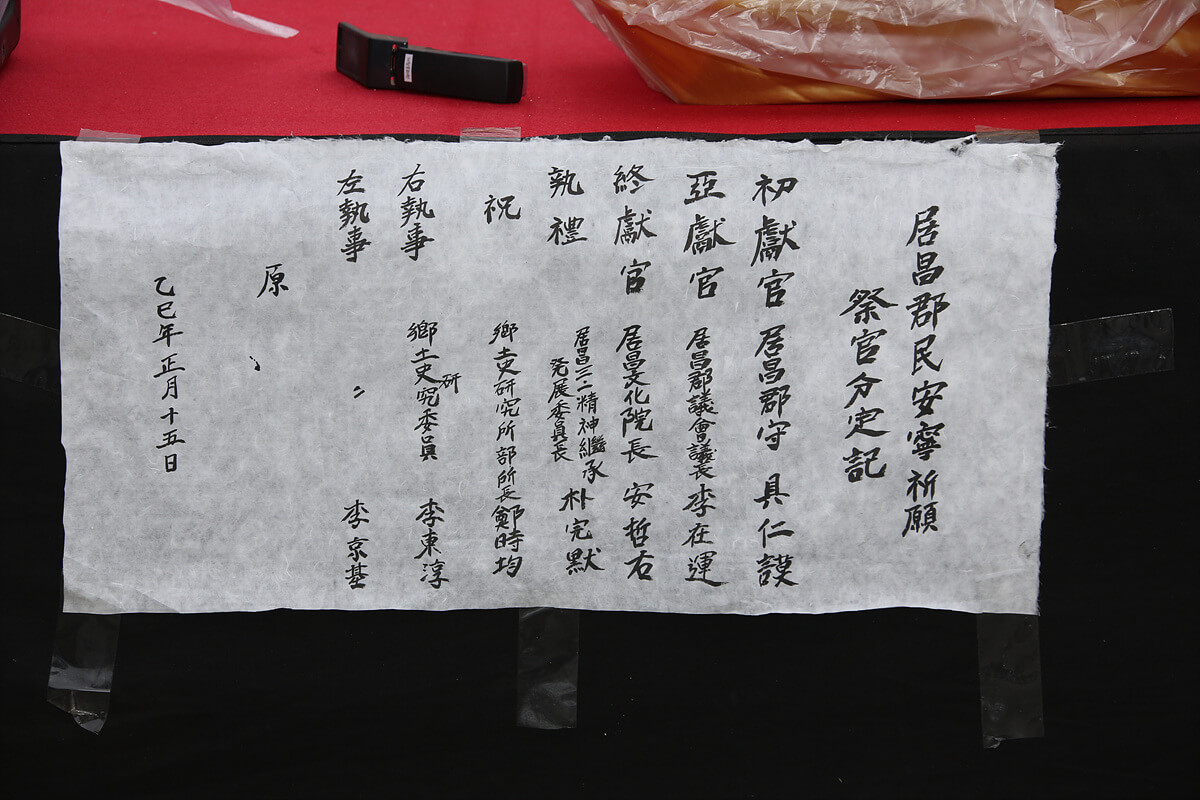 居昌郡民安寧祈願
祭官分定記
初獻官 居昌郡守 具仁謨
亞獻官 居昌郡議會議長 李在運
終獻官 居昌文化院長 安哲右
執禮 居昌三·一精神繼承
發展委員長 朴完默
祝 鄕土史硏究所部所長 鄭時均
右執事 鄕土史硏究委員 李東淳
左執事 〃 李京基
原
乙巳年 正月十五日